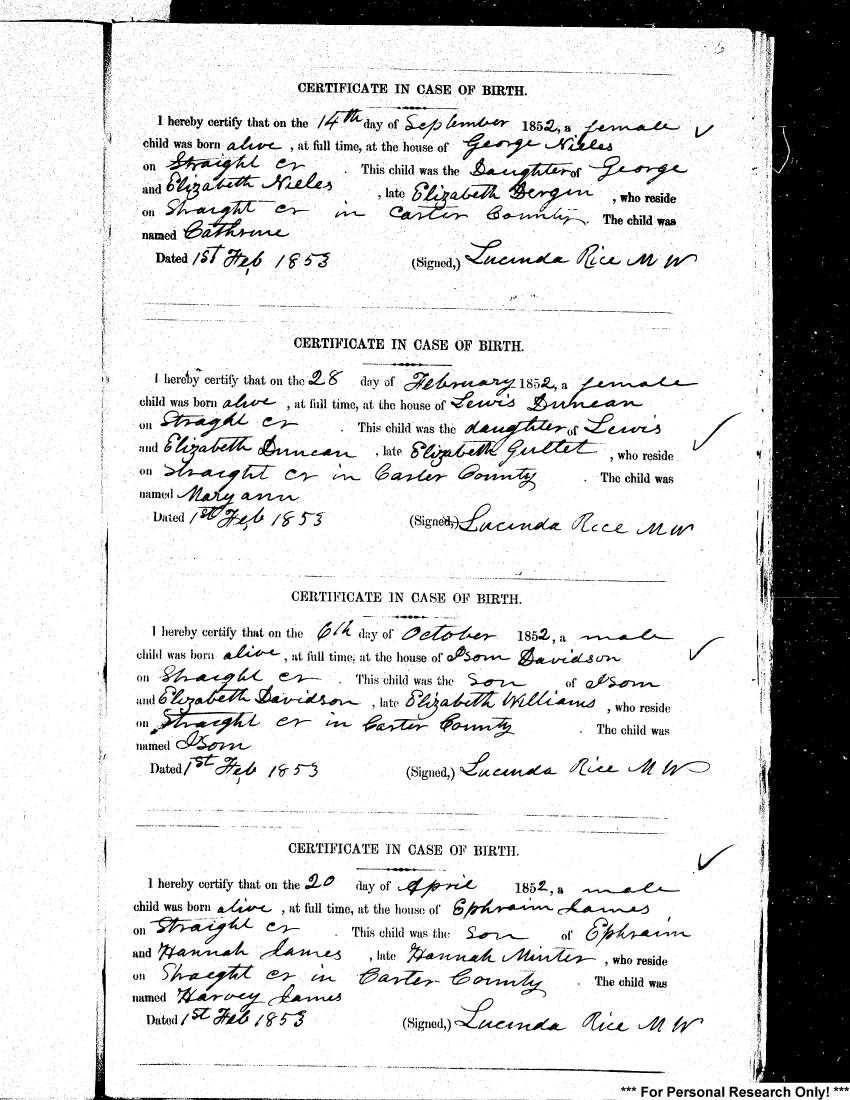 6
CERTIFICATE IN CASE OF BIRTH.
I hereby certify that on the 14th day of September 1852, a female
child was born alive, at full time, at the house of George Nieles
on Straight cr. This child was the Daughter of George
and Elizabeth Nieles, late Elizabeth Dergin, who reside
on Straight cr in Carter County. The child was
named Cathrine
Dated 1st Feb 1853 (Signed,) Lucinda Rice M W
CERTIFICATE IN CASE OF BIRTH.
I hereby certify that on the 28 day of February 1852, a female
child was born alive, at full time, at the house of Lewis Duncan
on Straght cr. This child was the daughter of Lewis
and Elizabeth Duncan, late Elizabeth Gultet, who reside
on Straight cr in Carter County. The child was
named Mary ann
Dated 1st Feb 1853 (Signed,) Lucinda Rice M W
CERTIFICATE IN CASE OF BIRTH.
I hereby certify that on the 6th day of October 1852, a male
child was born alive, at full time, at the house of Isom Davidson
on Straight cr. This child was the Son of Isom
and Elizabeth Davidson, late Elizabeth Williams, who reside
on Straight cr in Carter County. The child was
named Isom
Dated 1st Feb 1853 (Signed,) Lucinda Rice M W
CERTIFICATE IN CASE OF BIRTH.
I hereby certify that on the 20 day of April 1852, a male
child was born alive, at full time, at the house of Ephraim James
on Straight cr. This child was the Son of Ephraim
and Hannah James, late Hannah Minter, who reside
on Straeght cr in Carter County. The child was
named Harvey James
Dated 1st Feb 1853 (Signed,) Lucinda Rice M W
*** For Personal Research Only! ***